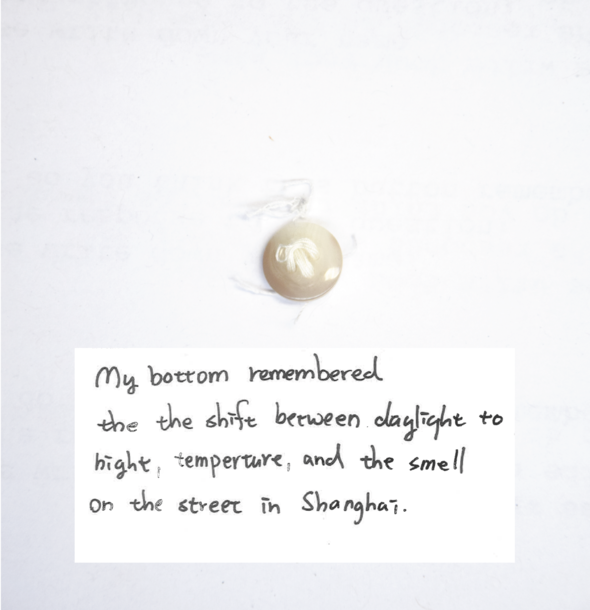 My bottom remembered
the the shift between daylight to
hight, temperture, and the smell
on the street in Shanghai.